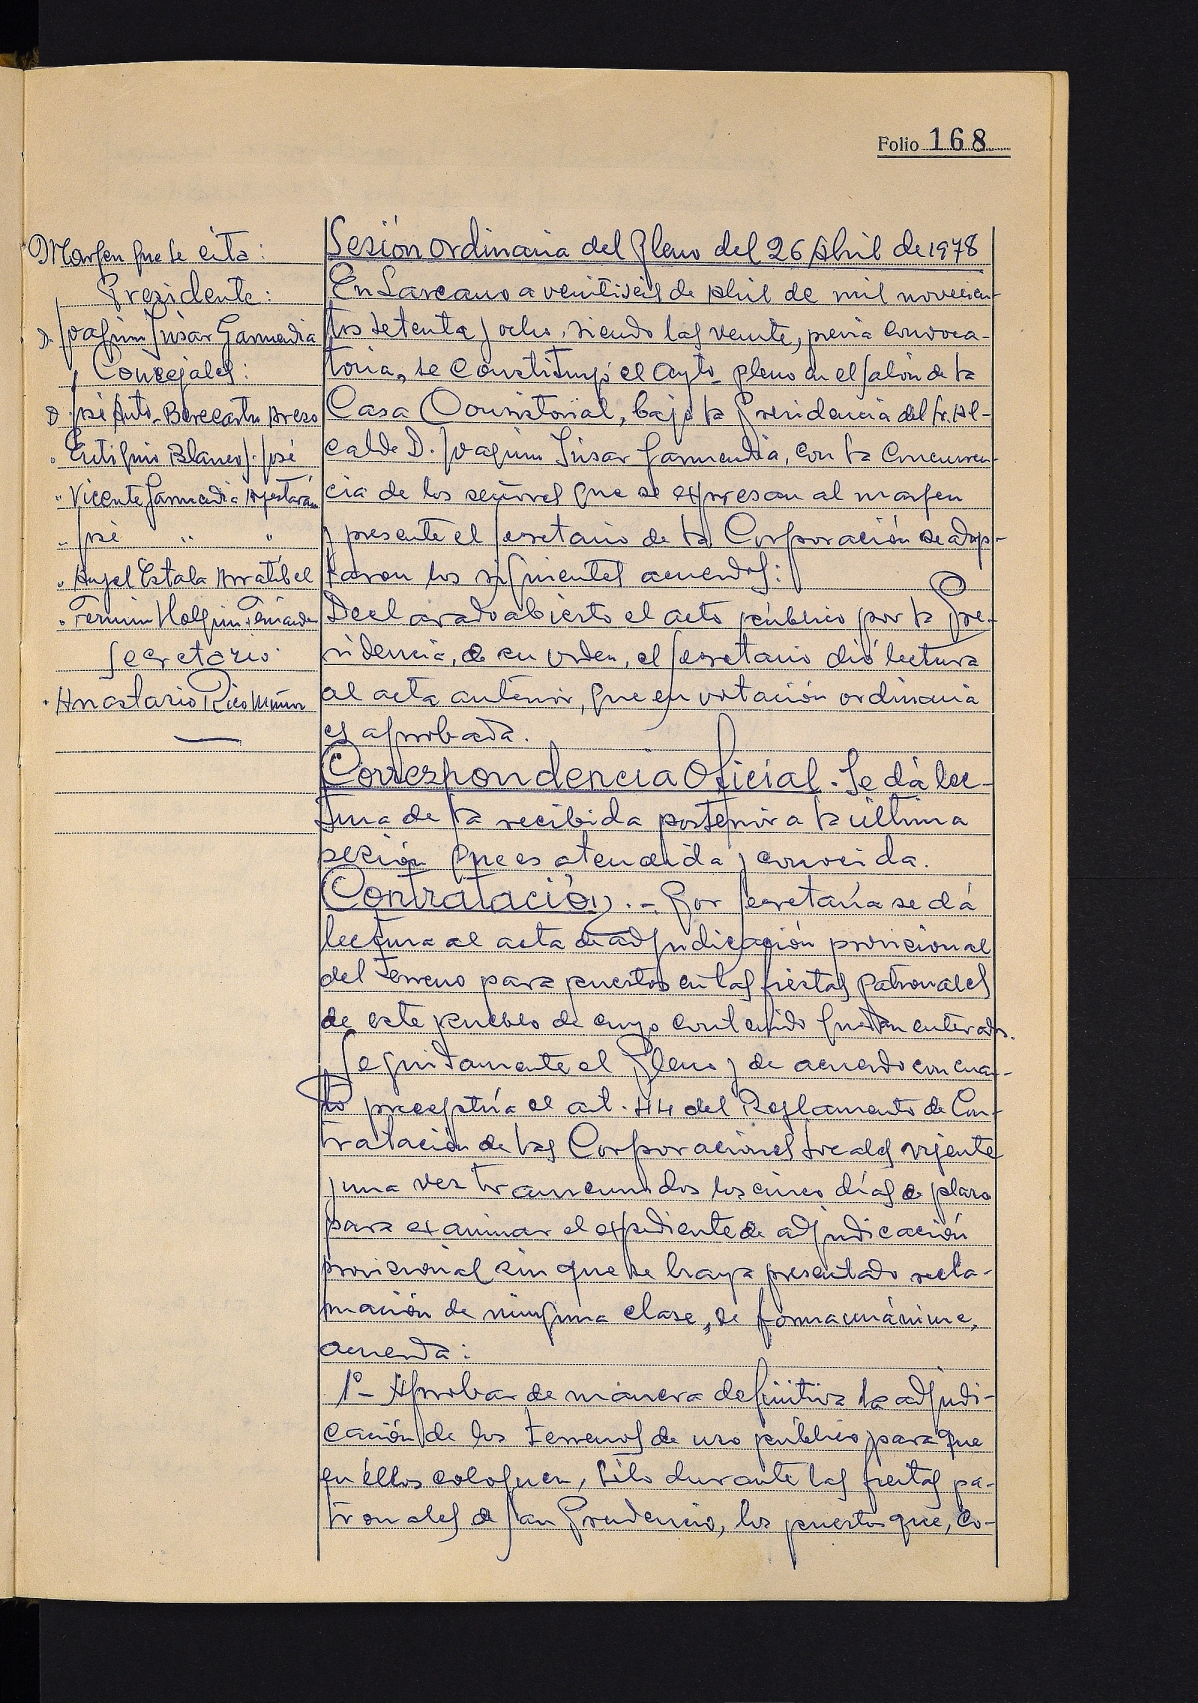 Folio 168
Margen que se cita:
Presidente:
D. Joaquin Jusar Garmendia
Concejales:
D. José Anto. Berecartu Areso
" Eutiquio Blanco J. José
" Vicente Garmendia Ayestarán
" José " "
" Angel Estala Arratibel
" Fermin Holguin Fernandez
Secretario
" Anastasio Rico Muñoz
Sesión ordinaria del Pleno del 26 Abril de 1978
En Lazcano a veintiseis de Abril de mil novecien-
tos setenta y ocho, siendo las veinte, previa convoca-
toria, se constituyó el Ayto. pleno en el salón de la
Casa Consistorial, bajo la Presidencia del Sr. Al-
calde D. Joaquin Jusar Garmendia, con la concurren-
cia de los señores que se expresan al margen
y presente el Secretario de la Corporación se adop-
taron los siguientes acuerdos:
Declarado abierto el acto público por la Pre-
sidencia, de su orden, el Secretario dió lectura
al acta anterior, que en votación ordinaria
es aprobada.
Correspondencia Oficial. Se dá lec-
tura de la recibida posterior a la última
sesión que es atendida y conocida.
Contratación.- Por Secretaría se dá
lectura al acta de adjudicación provisional
del terreno para puestos en las fiestas patronales
de este pueblo de cuyo contenido quedan enterados.
Seguidamente el Pleno y de acuerdo con cuan-
to preceptúa el art. 44 del Reglamento de Con-
tratación de las Corporaciones locales vigente
y una vez transcurridos los cinco días de plazo
para examinar el expediente de adjudicación
provisional sin que se haya presentado recla-
mación de ninguna clase, de forma unánime,
acuerda:
1º- Aprobar de manera definitiva la adjudi-
cación de los terrenos de uso público para que
en éllos coloquen, sito durante las fiestas pa-
tronales de San Prudencio, los puestos que, co-